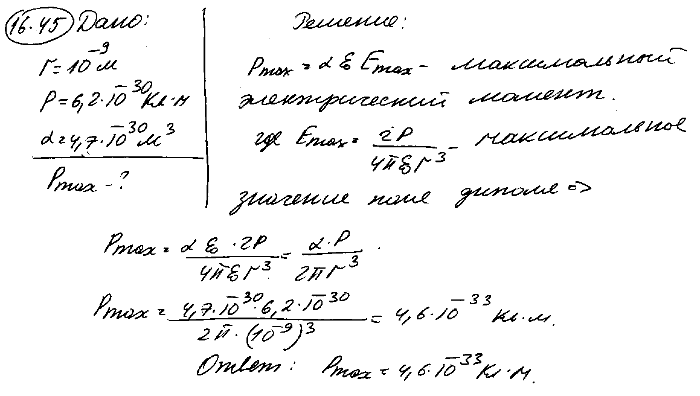 16.45 Дано:
r = 10⁻⁹ м
P = 6,2·10⁻³⁰ Кл·м
α = 4,7·10⁻³⁰ м³
Pmax - ?
Решение:
Pmax = α ε₀ Emax - максимальный
электрический момент.
где Emax = 2P / 4πε₀r³ - максимальное
значение поле диполе =>
Pmax = α ε₀ · 2P / 4πε₀r³ = α·P / 2πr³ .
Pmax = 4,7·10⁻³⁰·6,2·10⁻³⁰ / 2π·(10⁻⁹)³ = 4,6·10⁻³³ Кл·м.
Ответ: Pmax = 4,6·10⁻³³ Кл·м.